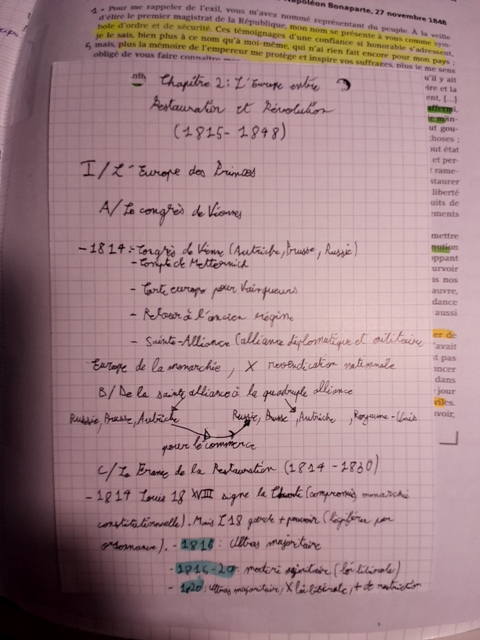 Napoléon Bonaparte, 27 novembre 1848
- Pour me rappeler de l'exil, vous m'avez nommé représentant du peuple. À la veille
d'élire le premier magistrat de la République, mon nom se présente à vous comme sym-
bole d'ordre et de sécurité. Ces témoignages d'une confiance si honorable s'adressent,
je le sais, bien plus à ce nom qu'à moi-même, qui n'ai rien fait encore pour mon pays ;
5 mais, plus la mémoire de l'empereur me protège et inspire vos suffrages, plus je me sens
obligé de vous faire connaître
Chapitre 2 : L'Europe entre
Restauration et Révolution
(1815-1848)
I/ L'Europe des Princes
A/ Le congrès de Vienne
- 1814 : - Congrès de Vienne (Autriche, Prusse, Russie)
- Comte de Metternich
- Carte europe pour vainqueurs
- Retour à l'ancien régime
- Sainte-Alliance (alliance diplomatique et militaire
Europe de la monarchie, X revendication nationale
B/ De la sainte alliance à la quadruple alliance
Russie, Prusse, Autriche Russie, Prusse, Autriche, Royaume-Unis
pour le commerce
C/ La France de la Restauration (1814-1830)
- 1814 Louis 18 XVIII signe la Charte (compromis monarchie
constitutionnelle). Mais L18 garde + pouvoir (légiférer par
ordonnance). - 1816 : Ultras majoritaire
- 1816-20 modéré majoritaire (loi libérale)
- 1820 : Ultras majoritaire, X loi libérale, + de restriction